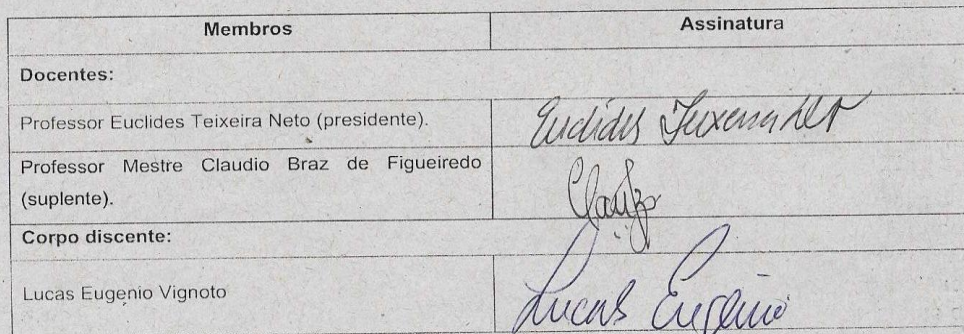 Membros Assinatura
Docentes:
Professor Euclides Teixeira Neto (presidente). Euclides Teixeira Neto
Professor Mestre Claudio Braz de Figueiredo
(suplente).
Corpo discente:
Lucas Eugenio Vignoto Lucas Eugenio